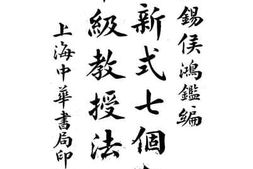 錫侯鴻鑑編
新式七個
級教授法
上海中華書局印